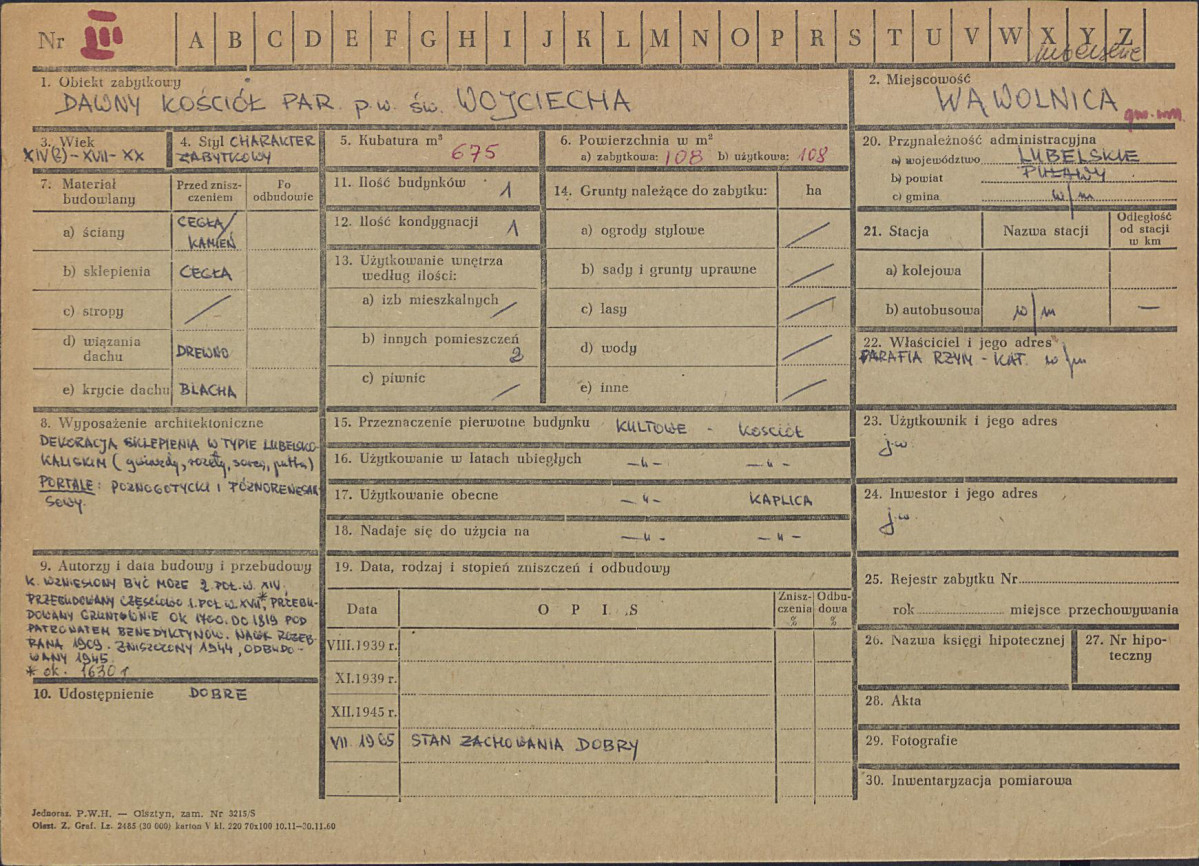 Nr III A B C D E F G H I J K L M N O P R S T U V W X Y Z
1. Obiekt zabytkowy
DAWNY KOŚCIÓŁ PAR. p.w. św. WOJCIECHA
2. Miejscowość
WĄWOLNICA
gm. wm.
3. Wiek
XIV(?) - XVII - XX
4. Styl CHARAKTER
ZABYTKOWY
5. Kubatura m³
675
6. Powierzchnia w m²
a) zabytkowa: 108 b) użytkowa: 108
7. Materiał
budowlany
Przed znisz-
czeniem
Po
odbudowie
a) ściany CEGŁA/
KAMIEŃ
b) sklepienia CEGŁA
c) stropy /
d) wiązania
dachu DREWNO
e) krycie dachu BLACHA
8. Wyposażenie architektoniczne
DEKORACJA SKLEPIENIA W TYPIE LUBELSKO-
KALISKIM (gwiazdy, rozety, serca, putta)
PORTALE: POZNOGOTYCKI I PÓŹNORENESAN
SOWY.
9. Autorzy i data budowy i przebudowy
K. WZNIESIONY BYĆ MOŻE 2. POŁ. W. XIV,
PRZEBUDOWANY CZĘŚCIOWO 1. POŁ. W. XVII*, PRZEBU-
DOWANY GRUNTOWNIE OK 1700. DO 1819 POD
PATRONATEM BENEDYKTYNÓW. NAWA ROZEB-
RANA 1909. ZNISZCZONY 1944, ODBUDO-
WANY 1945.
* ok. 1630 r
10. Udostępnienie DOBRE
11. Ilość budynków 1
12. Ilość kondygnacji 1
13. Użytkowanie wnętrza
według ilości:
a) izb mieszkalnych /
b) innych pomieszczeń
2
c) piwnic /
14. Grunty należące do zabytku: ha
a) ogrody stylowe /
b) sady i grunty uprawne /
c) lasy /
d) wody /
e) inne /
15. Przeznaczenie pierwotne budynku KULTOWE - KOŚCIÓŁ
16. Użytkowanie w latach ubiegłych -"- -"-
17. Użytkowanie obecne -"- KAPLICA
18. Nadaje się do użycia na -"- -"-
19. Data, rodzaj i stopień zniszczeń i odbudowy
Data O P I S
Znisz-
czenia
%
Odbu-
dowa
%
VIII.1939 r.
XI.1939 r.
XII.1945 r.
VII. 1965 STAN ZACHOWANIA DOBRY
20. Przynależność administracyjna
a) województwo LUBELSKIE
b) powiat PUŁAWY
c) gmina w/m
21. Stacja Nazwa stacji
Odległość
od stacji
w km
a) kolejowa
b) autobusowa w/m —
22. Właściciel i jego adres
PARAFIA RZYM - KAT. w/m
23. Użytkownik i jego adres
j.w
24. Inwestor i jego adres
j.w.
25. Rejestr zabytku Nr
rok miejsce przechowywania
26. Nazwa księgi hipotecznej
27. Nr hipo-
teczny
28. Akta
29. Fotografie
30. Inwentaryzacja pomiarowa
Jednoraz. P.W.H. — Olsztyn, zam. Nr 3215/S
Olszt. Z. Graf. Lz. 2485 (30 000) karton V kl. 220 70x100 10.11—30.11.60